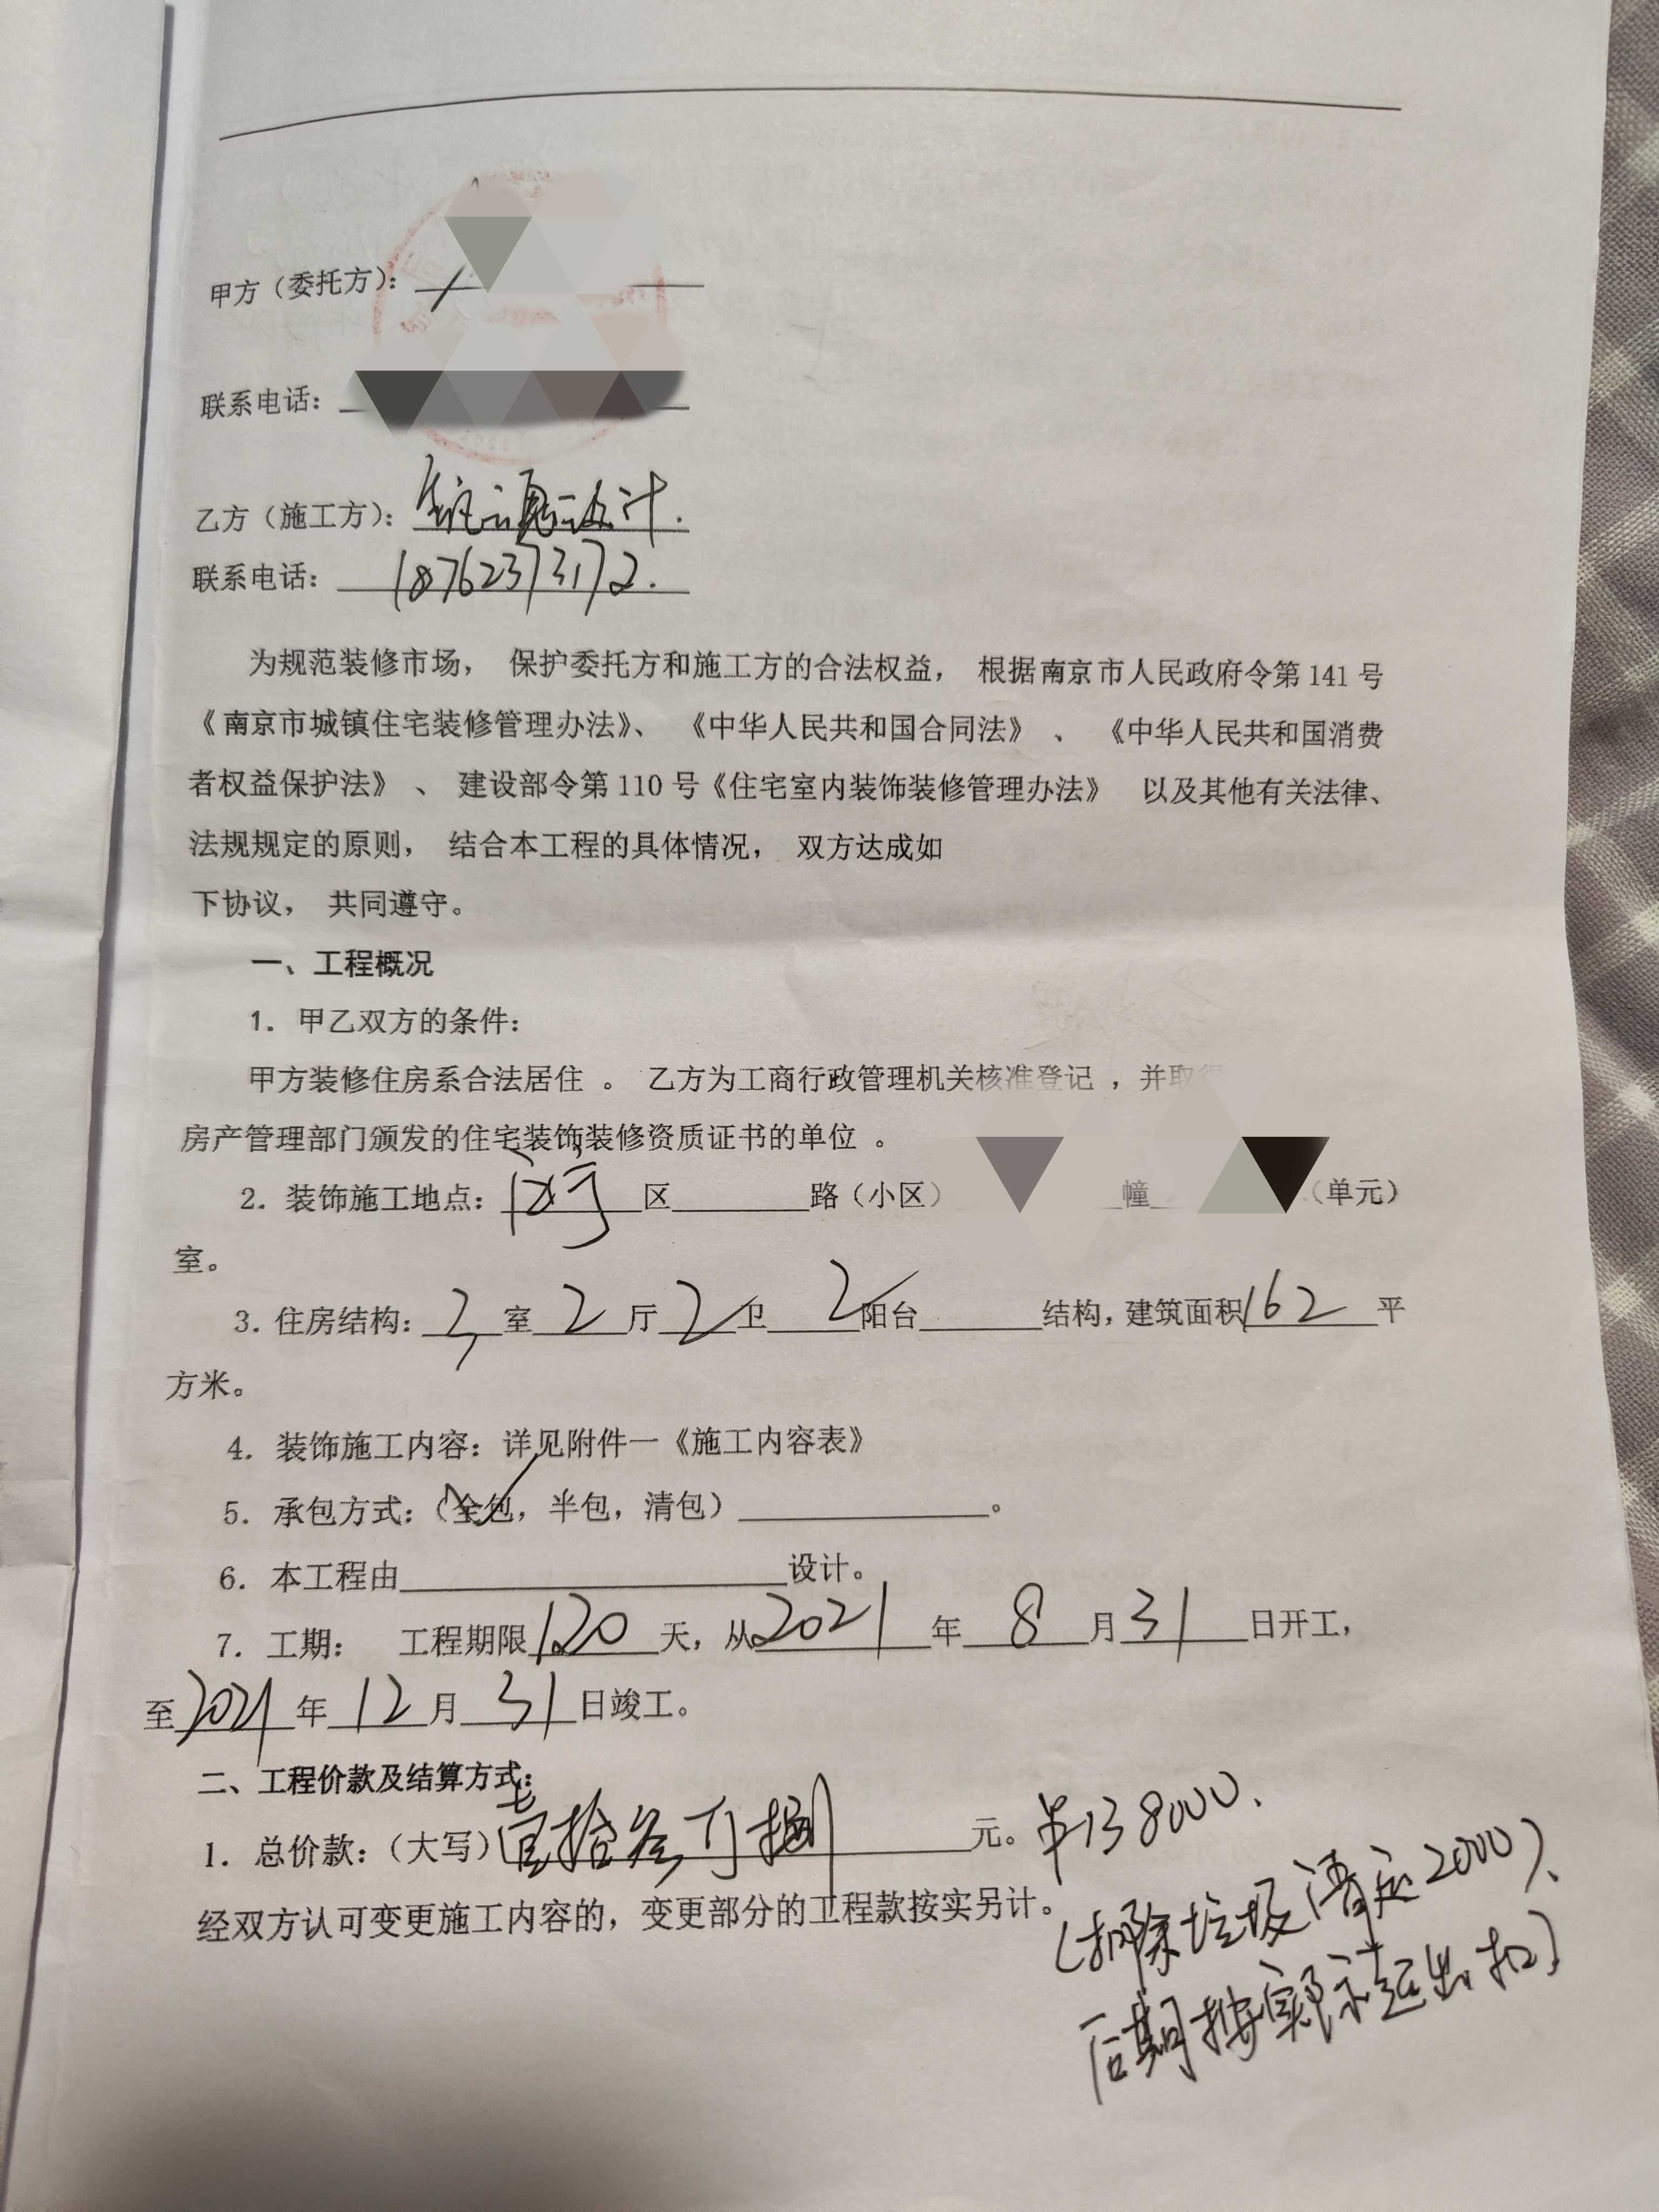 甲方（委托方）：
联系电话：
乙方（施工方）： 设计.
联系电话： 18762373172.
为规范装修市场， 保护委托方和施工方的合法权益， 根据南京市人民政府令第 141 号
《南京市城镇住宅装修管理办法》、 《中华人民共和国合同法》 、 《中华人民共和国消费
者权益保护法》 、 建设部令第 110 号《住宅室内装饰装修管理办法》 以及其他有关法律、
法规规定的原则， 结合本工程的具体情况， 双方达成如
下协议， 共同遵守。
一、工程概况
1. 甲乙双方的条件：
甲方装修住房系合法居住 。 乙方为工商行政管理机关核准登记 ，并取得
房产管理部门颁发的住宅装饰装修资质证书的单位 。
2. 装饰施工地点： 区 路（小区） 幢 （单元）
室。
3. 住房结构： 3 室 2 厅 2 卫 2 阳台 结构，建筑面积 162 平
方米。
4. 装饰施工内容：详见附件一《施工内容表》
5. 承包方式：（全包，半包，清包） 。
6. 本工程由 设计。
7. 工期： 工程期限 120 天，从 2021 年 8 月 31 日开工，
至 2021 年 12 月 31 日竣工。
二、工程价款及结算方式：
1. 总价款：（大写） 壹拾叁万捌 元。 ¥138000.
经双方认可变更施工内容的，变更部分的工程款按实另计。
（扣除垃圾清运2000）、
后期按实际清运出扣）